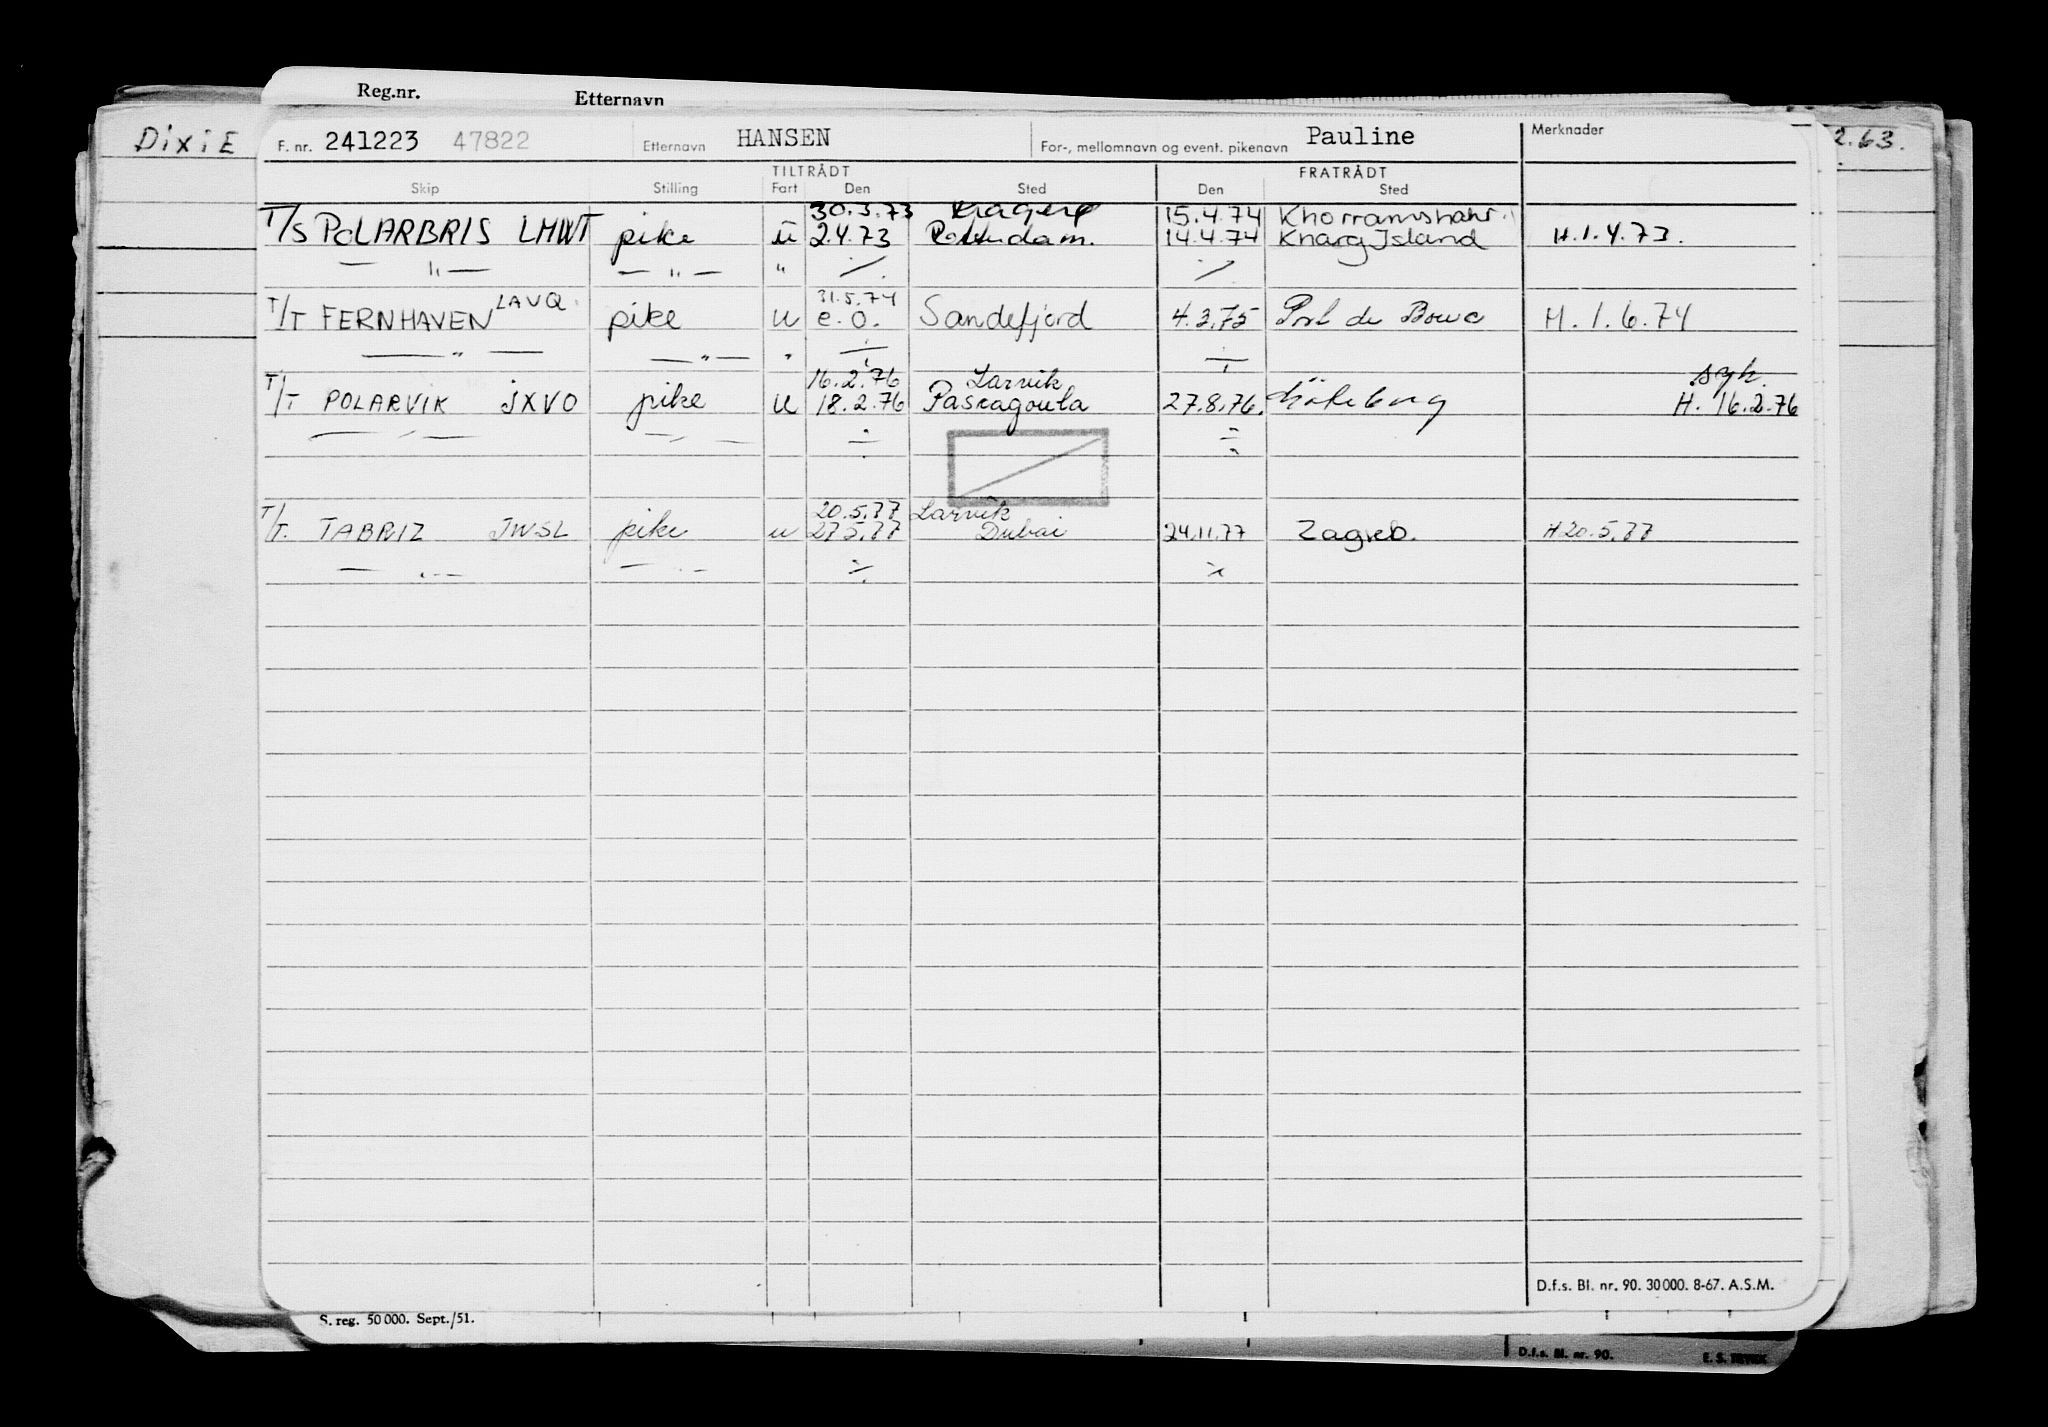 Reg.nr. Etternavn
DixiE F. nr. 241223 47822 Etternavn HANSEN For-, mellomnavn og event. pikenavn Pauline Merknader 2.63.
TILTRÅDT FRATRÅDT
Skip Stilling Fart Den Sted Den Sted
30.3.73 Kragerø 15.4.74 Khorramshahr.
T/S POLARBRIS LMWT pike ü 2.4.73 Rotterdam. 14.4.74 Kharg Island H.1.4.73.
— " — — " — " ./. ./.
LAVQ. 31.5.74
T/T FERNHAVEN pike u e.o. Sandefjord 4.3.75 Port de Bouc H.1.6.74
— " — — " — " ÷ ÷
16.2.76 Larvik syk.
T/T POLARVIK JXVO pike u 18.2.76 Pascagoula 27.8.76. Göteborg H. 16.2.76
— " — — " — ÷ ÷
20.5.77 Larvik
T/T. TABRIZ JWSL pike u 27.5.77 Dubai 24.11.77 Zagreb. H 20.5.77
— " — — " — ÷ ÷
D.f.s. Bl. nr. 90. 30 000. 8-67. A.S.M.
S. reg. 50 000. Sept./51.
D.f.s. Bl. nr. 90. E. S. TRYKK